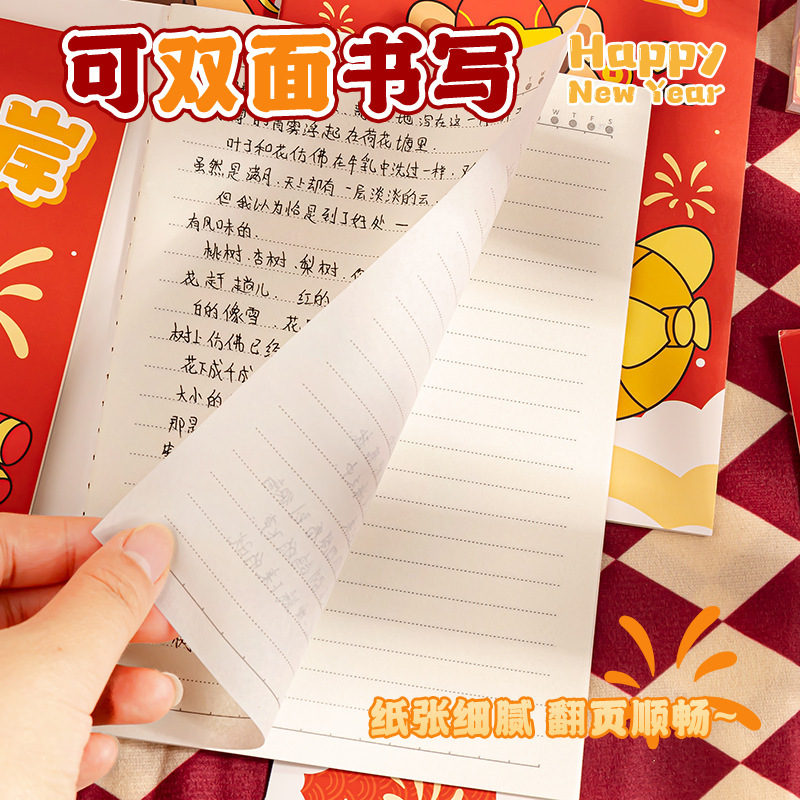 可双面书写
Happy
New Year
岸
W T F S
起在荷花塘里.
叶子和花仿佛在牛乳中洗过一样,
虽然是满月.天上却有一层淡淡的云
但我以为恰是到了好处一
有风味的.
桃树.杏树.梨树
花赶趟儿. 红的
白的像雪.花
树上仿佛已经
花下成千成
大小的
那是
纸张细腻 翻页顺畅~